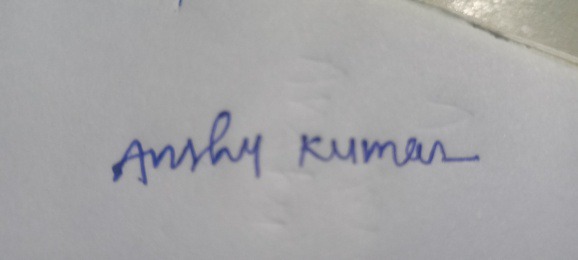 Anshy Kumar